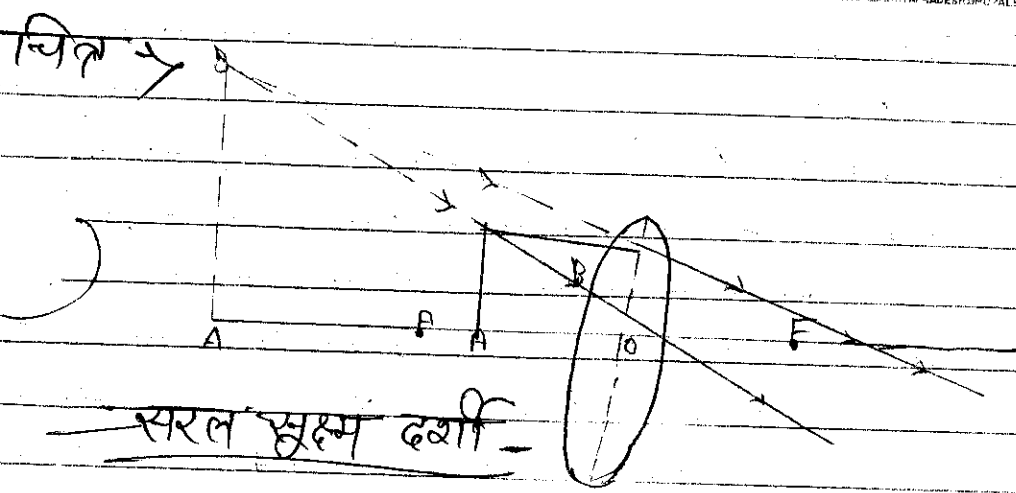 चित्र →
B
B
A F A O F
सरल सूक्ष्म दर्शी -